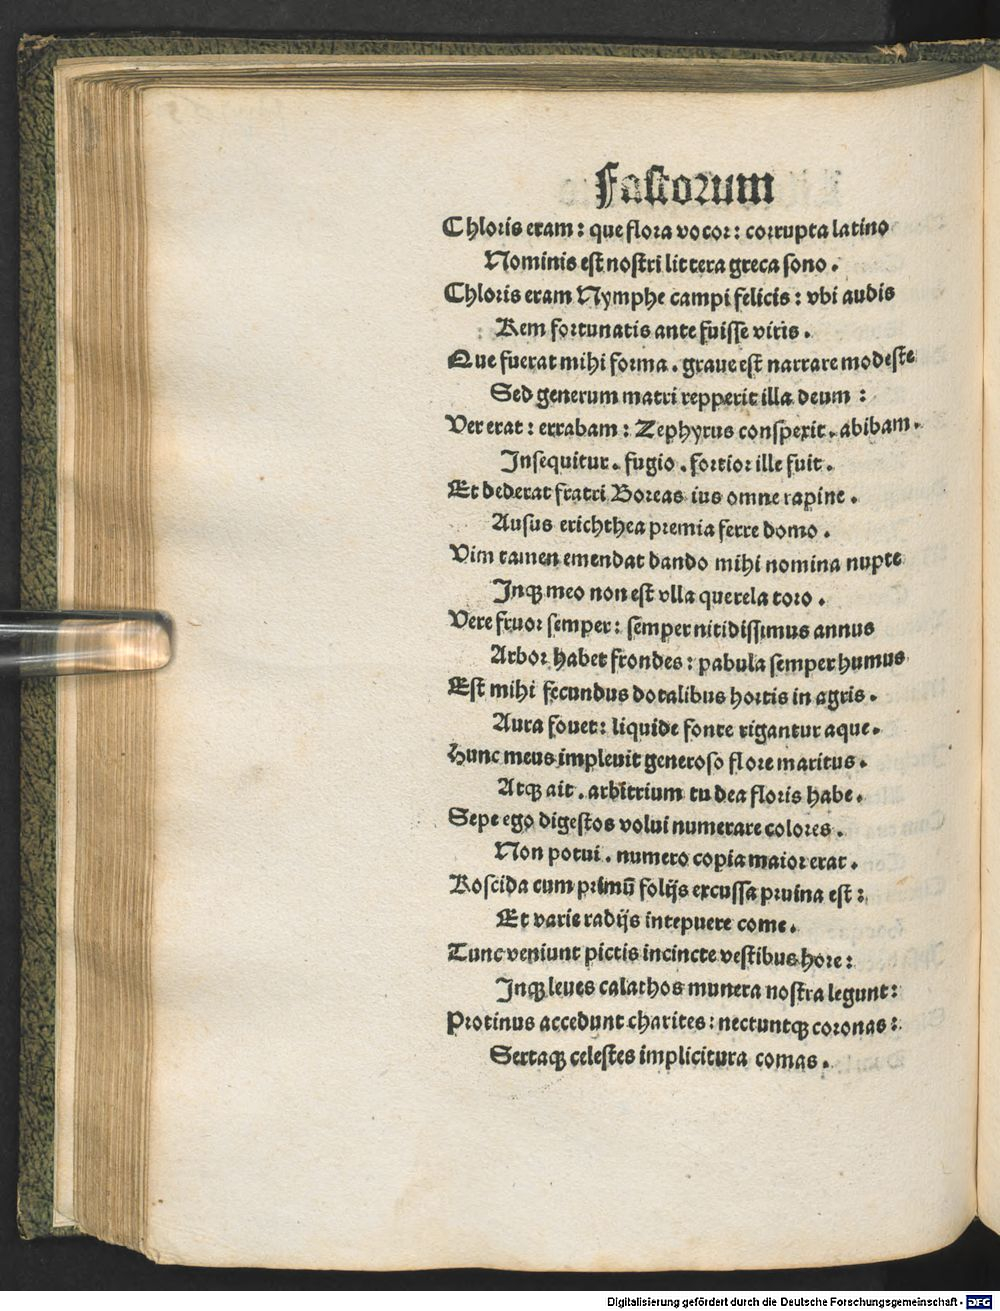 Fastorum
Chloris eram: que flora vocor: corrupta latino
Nominis est nostri littera greca sono.
Chloris eram Nymphe campi felicis: vbi audis
Rem fortunatis ante fuisse viris.
Que fuerat mihi forma. graue est narrare modeste
Sed generum matri repperit illa deum:
Ver erat: errabam: Zephyrus conspexit. abibam.
Insequitur. fugio. fortior ille fuit.
Et dederat fratri Boreas ius omne rapine.
Ausus erichthea premia ferre domo.
Vim tamen emendat dando mihi nomina nupte
Inqꝫ meo non est vlla querela toro.
Vere fruor semper: semper nitidissimus annus
Arbor habet frondes: pabula semper humus
Est mihi fecundus dotalibus hortis in agris.
Aura fouet: liquide fonte rigantur aque.
Hunc meus impleuit generoso flore maritus.
Atqꝫ ait. arbitrium tu dea floris habe.
Sepe ego digestos volui numerare colores.
Non potui. numero copia maior erat.
Roscida cum primū folijs excussa pruina est:
Et varie radijs intepuere come.
Tunc veniunt pictis incincte vestibus hore:
Inqꝫ leues calathos munera nostra legunt:
Protinus accedunt charites: nectuntqꝫ coronas:
Sertaqꝫ celestes implicitura comas.
Digitalisierung gefördert durch die Deutsche Forschungsgemeinschaft - DFG